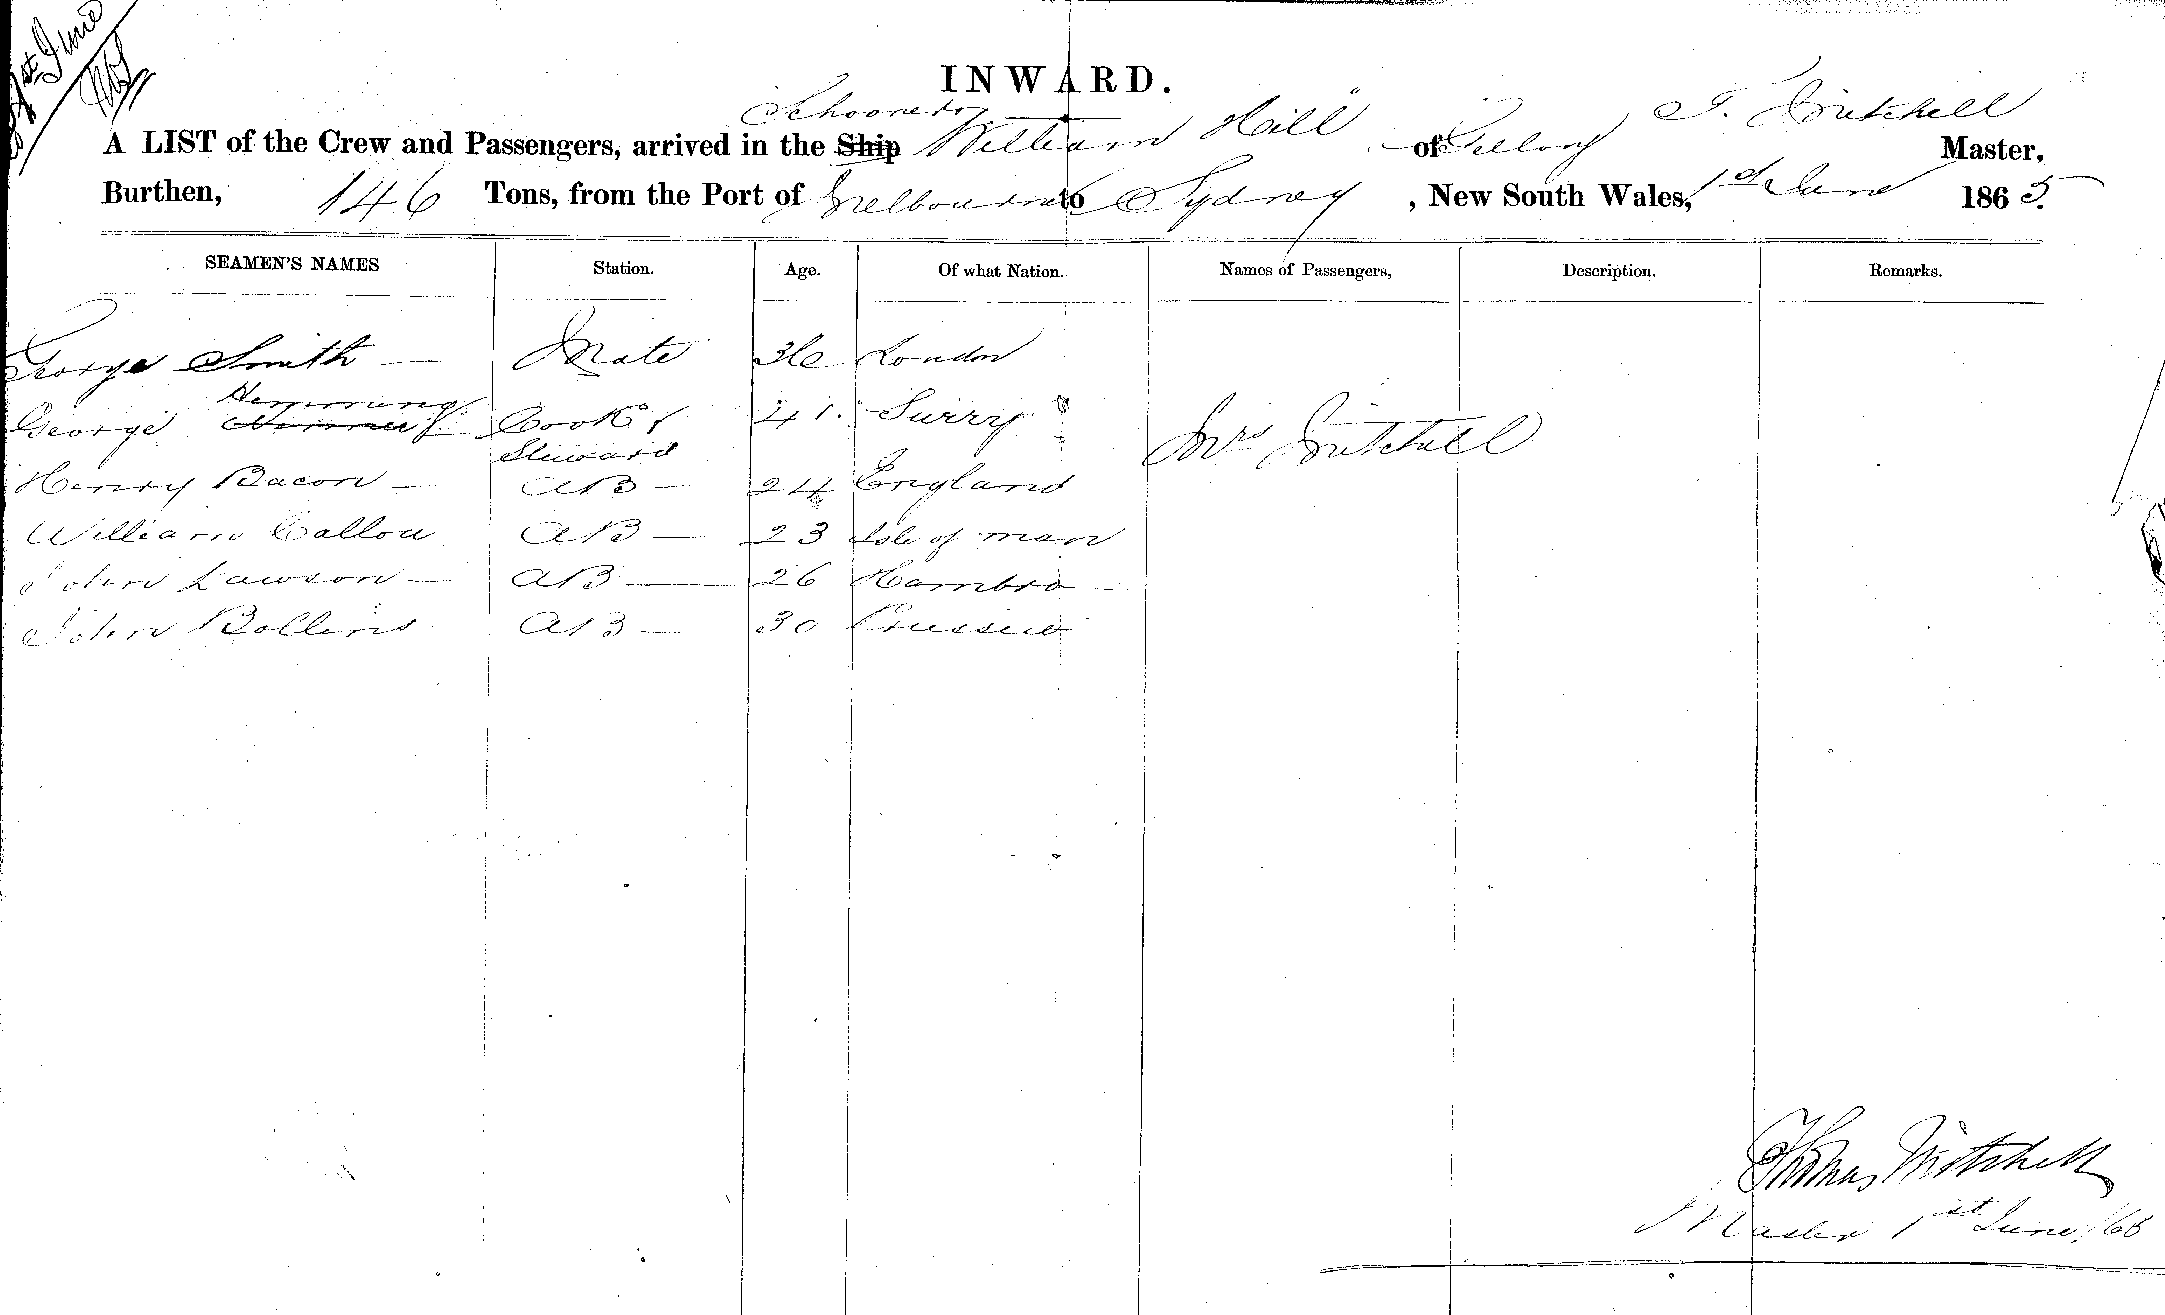 1st June
INWARD.
Schooner
A LIST of the Crew and Passengers, arrived in the Ship William Hill of T. Mitchell Master,
Burthen, 146 Tons, from the Port of Melbourne to Sydney, New South Wales, 1st June 1865.
SEAMEN'S NAMES Station. Age. Of what Nation. Names of Passengers, Description. Remarks.
George Smith — Mate 36 London
Hemming
George Cook & 41. Surry Mrs Mitchell
Steward
Henry Bacon — AB — 24 England
William Callow AB — 23 Isle of man
John Lawson — AB — 26 Hambro —
John Bollens AB — 30 Prussia
Thomas Mitchell
Master 1st June /65